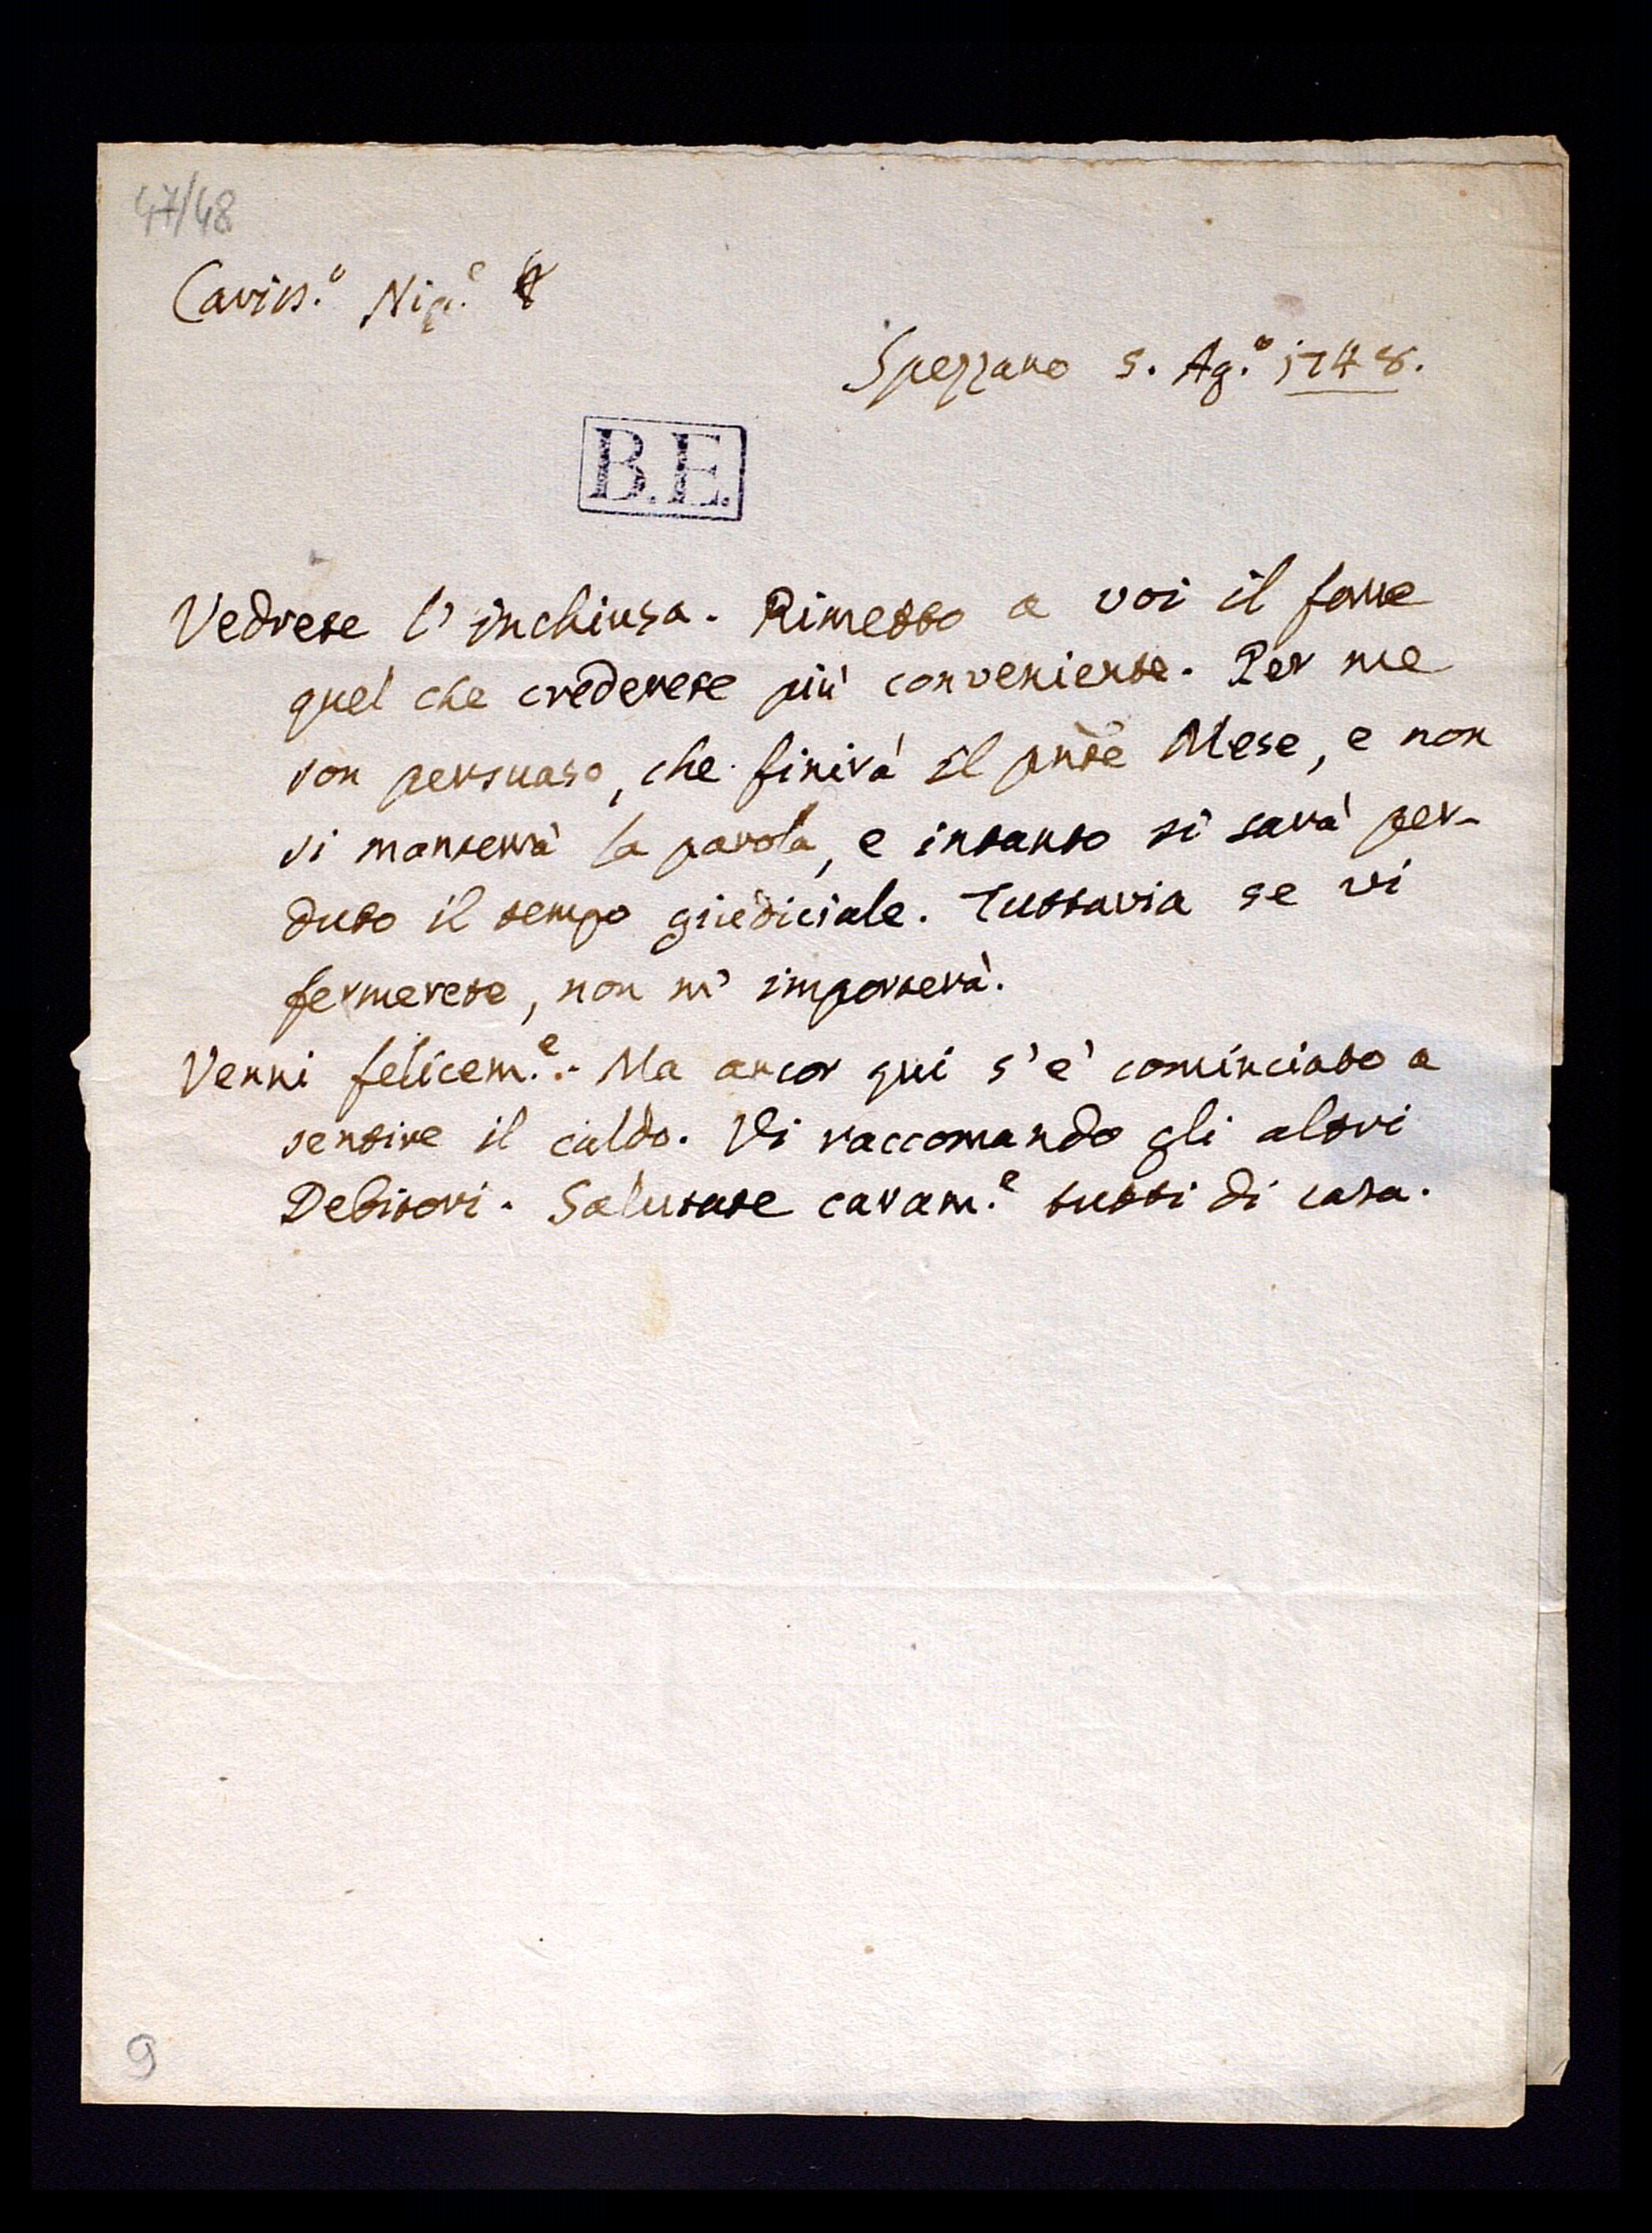 47/48
Cariss.º Nip.e
Spezzano 5. Ag.º 1748.
B.E.
Vedrete l'inchiusa. Rimetto a voi il farne
quel che crederete più conveniente. Per me
son persuaso, che finirà il pñte Mese, e non
vi manterrà la parola, e intanto si sarà per-
duto il tempo giudiciale. Tuttavia se vi
fermerete, non m'importerà.
Venni felicem.e. Ma ancor qui s'è cominciato a
sentire il caldo. Vi raccomando gli altri
Debitori. Salutate caram.e tutti di casa.
9